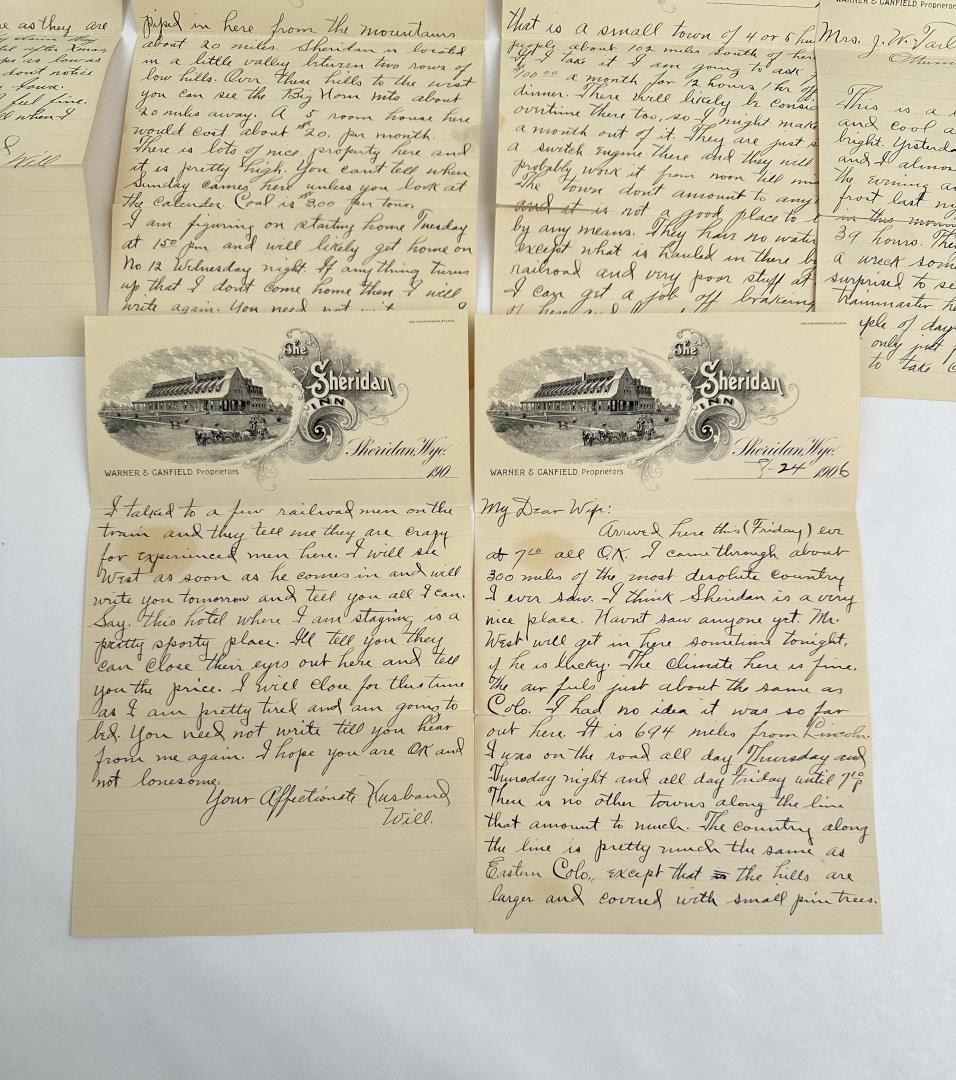 e as they are
after Xmas
as low as
don't notice
Iowa.
feel fine.
when I
Will
piped in here from the mountains
about 20 miles. Sheridan is located
in a little valley between two rows of
low hills. Over these hills to the west
you can see the Big Horn mts about
20 miles away. A 5 room house here
would cost about $20. per month.
There is lots of nice property here and
it is pretty high. You can't tell when
Sunday comes here unless you look at
the calender. Coal is $3.00 per ton.
I am figuring on starting home Tuesday
at 150 pm and will likely get home on
No 12 Wednesday night. If anything turns
up that I dont come home then I will
write again. You need not
that is a small town of 4 or 5 hun
people about 102 miles south of her
If I take it I am going to ask
$100.00 a month for 12 hours, 1 hr off
dinner. There will likely be consid
overtime there too, so I might make
a month out of it. They are just
a switch engine there and they will
probably work it from noon till mid
The town dont amount to any
and it is not a good place to
by any means. They have no water
except what is hauled in there b
railroad and very poor stuff at
I can get a job off braking
WARNER & CANFIELD, Proprietors
Mrs. J. W. Tarl
This is a
and cool a
bright. Yesterda
and I almos
the evening a
frost last n
in this morni
39 hours. The
a week som
surprised to se
trainmaster he
ple of day
only just
to take
The
Sheridan
INN
WARNER & CANFIELD, Proprietors
Sheridan, Wyo.
190
I talked to a few railroad men on the
train and they tell me they are crazy
for experienced men here. I will see
West as soon as he comes in and will
write you tomorrow and tell you all I can.
Say, this hotel where I am staying is a
pretty sporty place. Ill tell you they
can close their eyes out here and tell
you the price. I will close for this time
as I am pretty tired and am going to
bed. You need not write till you hear
from me again. I hope you are OK and
not lonesome.
Your Affectionate Husband
Will.
The
Sheridan
INN
WARNER & CANFIELD, Proprietors
Sheridan, Wyo.
-24 1906
My Dear Wife:
Arrived here this (Friday) eve
at 710 all OK. I came through about
300 miles of the most desolute country
I ever saw. I think Sheridan is a very
nice place. Havnt saw anyone yet. Mr.
West will get in here sometime tonight,
if he is lucky. The climate here is fine,
the air feels just about the same as
Colo. I had no idea it was so far
out here. It is 694 miles from Lincoln.
I was on the road all day Thursday and
Thursday night and all day Friday until 710 p
There is no other towns along the line
that amount to much. The country along
the line is pretty much the same as
Eastern Colo., except that the hills are
larger and covered with small pine trees.